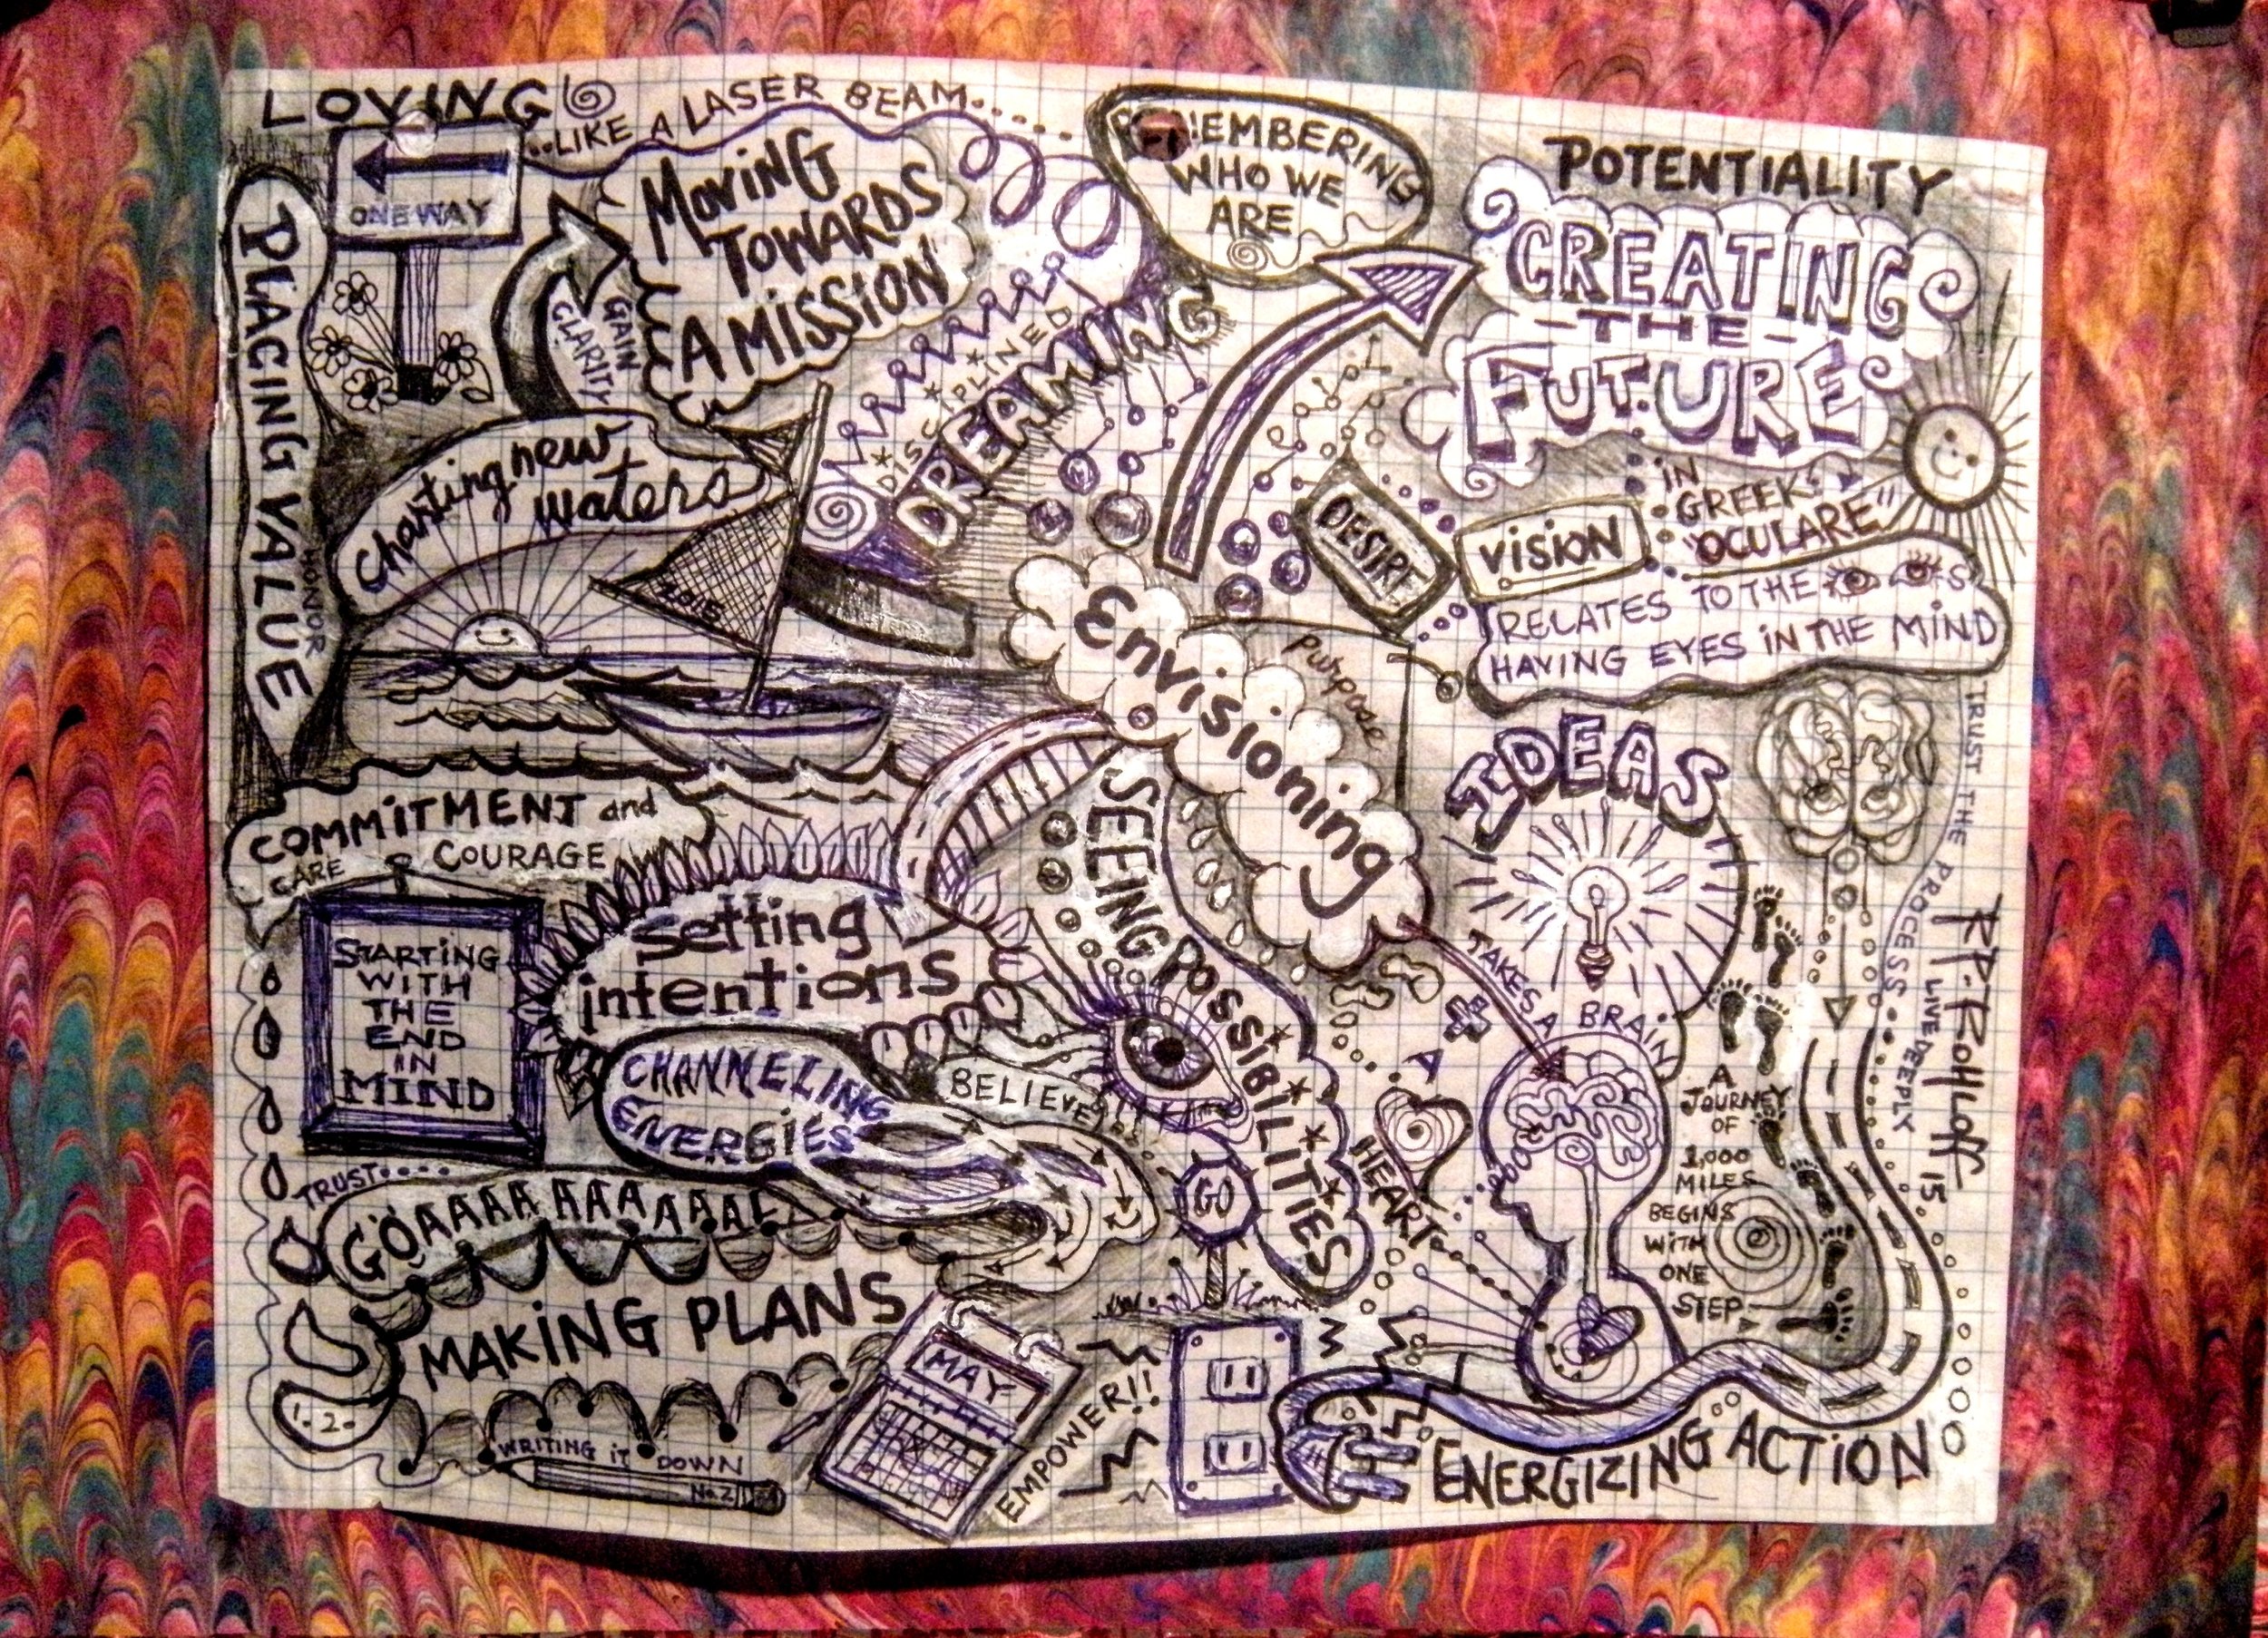 LOVING
..LIKE A LASER BEAM.....
ONE WAY
PLACING VALUE
HONOR
GAIN
CLARITY
MOVING
TOWARDS
A MISSION
REMEMBERING
WHO WE
ARE
POTENTIALITY
CREATING
-THE-
FUTURE
DISCIPLINED
DREAMING
Charting new
waters
DESIRE
VISION
IN
GREEK
"OCULARE"
RELATES TO THE S
HAVING EYES IN THE MIND
Envisioning
purpose
IDEAS
TAKES A BRAIN
A
HEART
TRUST THE PROCESS
LIVE DEEPLY
RP. ROHLOFF 15
SEEING POSSIBILITIES
COMMITMENT and
CARE COURAGE
STARTING
WITH
THE
END
IN
MIND
setting
intentions
CHANNELING
ENERGIES
BELIEVE!
TRUST....
GOAAAAAAAAAAL
GO
A
JOURNEY
OF
1,000
MILES
BEGINS
WITH
ONE
STEP
MAKING PLANS
1. 2.
WRITING IT DOWN
No. 2
MAY
EMPOWER!!
ENERGIZING ACTION